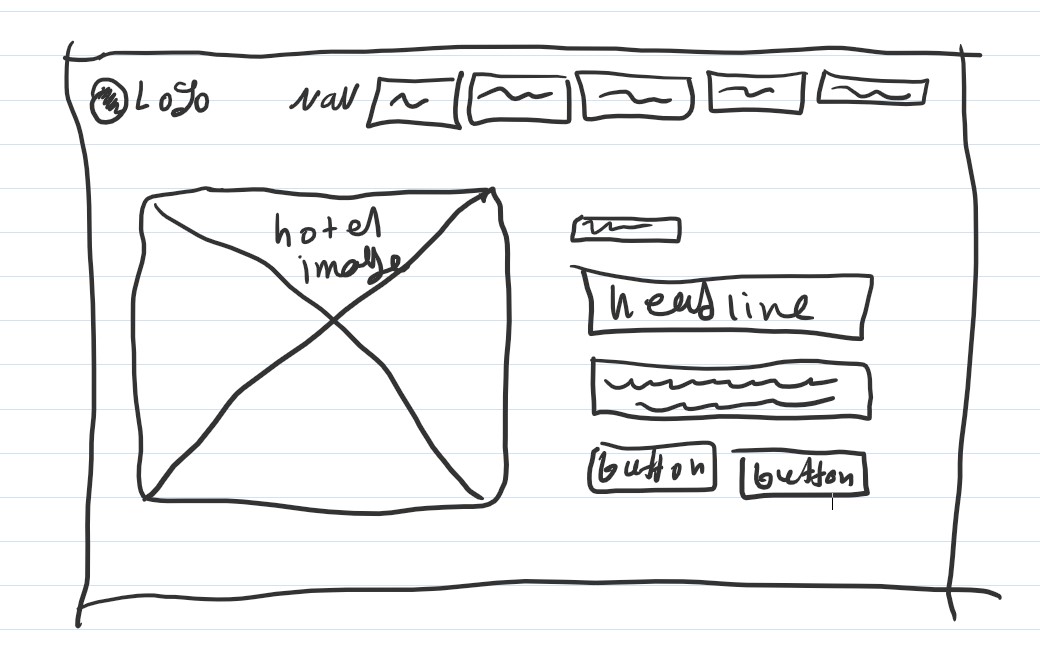 LOGO
NAV
hotel
image
headline
button
button